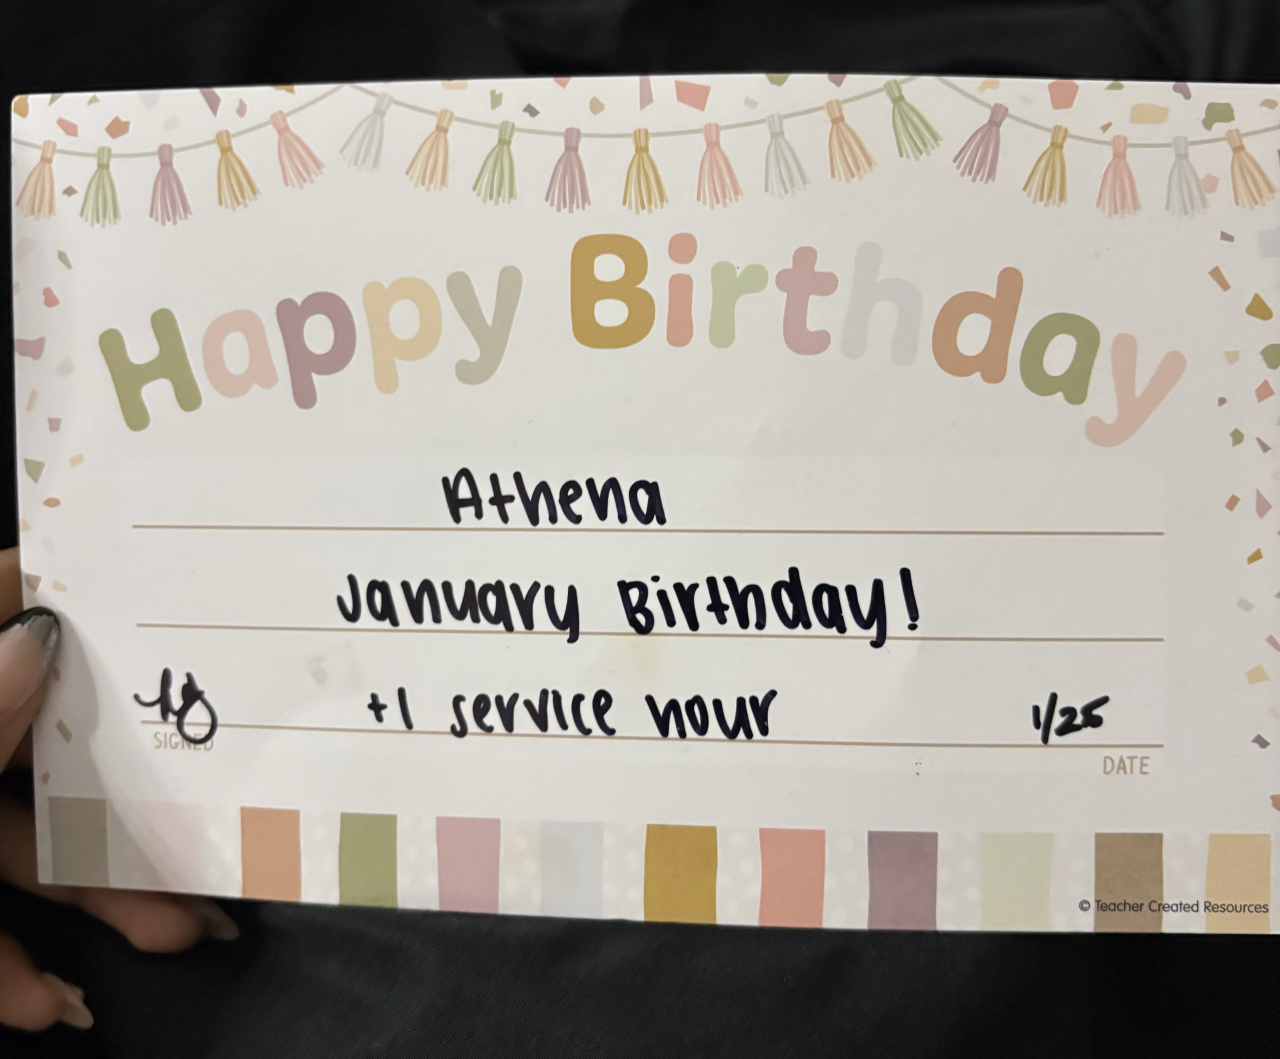 Happy Birthday
Athena
January Birthday!
+1 service hour 1/25
SIGNED
DATE
© Teacher Created Resources